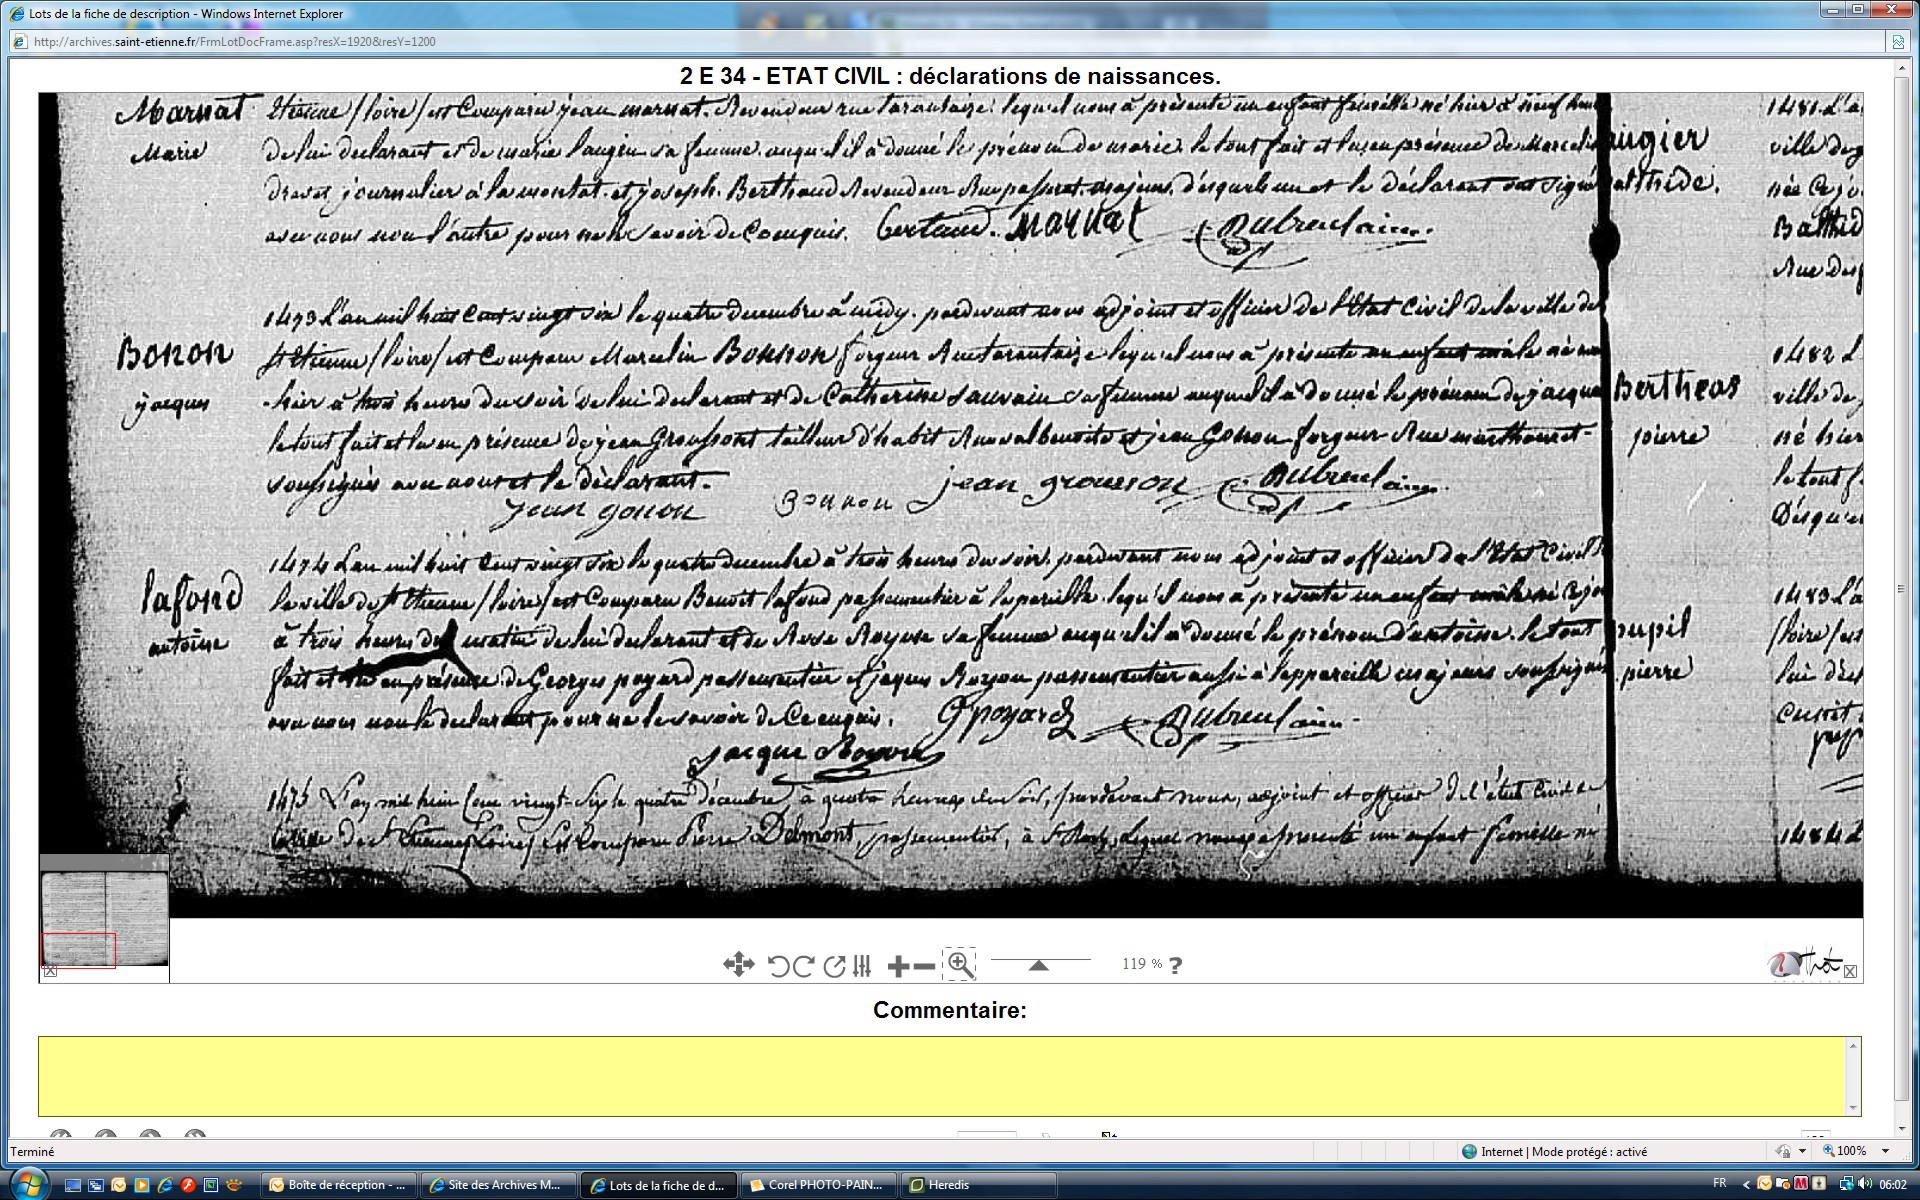 Lots de la fiche de description - Windows Internet Explorer
http://archives.saint-etienne.fr/FrmLotDocFrame.asp?resX=1920&resY=1200
2 E 34 - ETAT CIVIL : déclarations de naissances.
Marnat
Marie
Etienne /loire/ est Comparu jean marnat. Revendeur rue tarantaize. lequel nous à présenté un enfant femelle né hier à neuf heu
de lui declarant et de marie laugier sa femme. auquel il à donné le prénom de marie. le tout fait et lu en présence de Marcelin
journalier à la montat. et joseph. Berthaud Revendeur Rue passerat. majeurs. desquels un et le déclarant ont signé
avec nous non l'autre pour ne le savoir de Ce enquis. Bertaud. Marnat Dubreulaine
Bonon
jacques
1473 L'an mil huit Cent vingt six le quatre decembre à midy. pardevant nous adjoint et officier de l'Etat Civil de la ville de
St Etienne /loire/ est Comparu Marcelin Bonnon forgeur Rue tarantaize lequel nous à présenté un enfant mâle né
hier à trois heures du soir de lui declarant et de Catherine Sauvain sa femme auquel il à donné le prénom de jacques
le tout fait et lu en présence de jean Groussont tailleur d'habit Rue valbenoite et jean Gonon forgeur Rue
soussignés avec nous et le déclarant.
jean gonon Bonnon jean grousson Dubreulaine
lafond
antoine
1474 L'an mil huit Cent vingt six le quatre decembre à trois heures du soir. pardevant nous adjoint et officier de l'Etat Civil de
la ville de St Etienne /loire/ est Comparu Benoit lafond passementier à lapareille. lequ'il nous à présenté un enfant mâle né Ce jour
à trois heures du matin de lui declarant et de Rose Royon sa femme auquel il à donné le prénom d'antoine. le tout
fait et lu en présence de Georges poyard passementier et jaques Royon passementier aussi à l'appareille majeurs soussignés
avec nous non le declarant pour ne le savoir de Ce enquis. G poyard Dubreulaine
jacque Royon
1475 L'an mil huit Cent vingt-Six le quatre décembre, à quatre heures du Soir, pardevant nous, adjoint et officier de l'état Civil de
la ville de St Etienne /Loire/ Est Comparu Pierre Delmont, passementier, à St Roch, Lequel nous a présenté un enfant femelle né
augier
Bathide.
Bertheas
pierre
pupil
pierre
1481 L'a
ville de
née Ce jo
Bathid
Rue des
1482 L
ville de
né hier
le tout f
Desqu'e
1483 L'a
/loire/ est
lui dec
1484 L
119 % ?
Commentaire:
Terminé
Internet | Mode protégé : activé
100%
Boîte de réception - ...
Site des Archives M...
Lots de la fiche de d...
Corel PHOTO-PAIN...
Heredis
FR
06:02